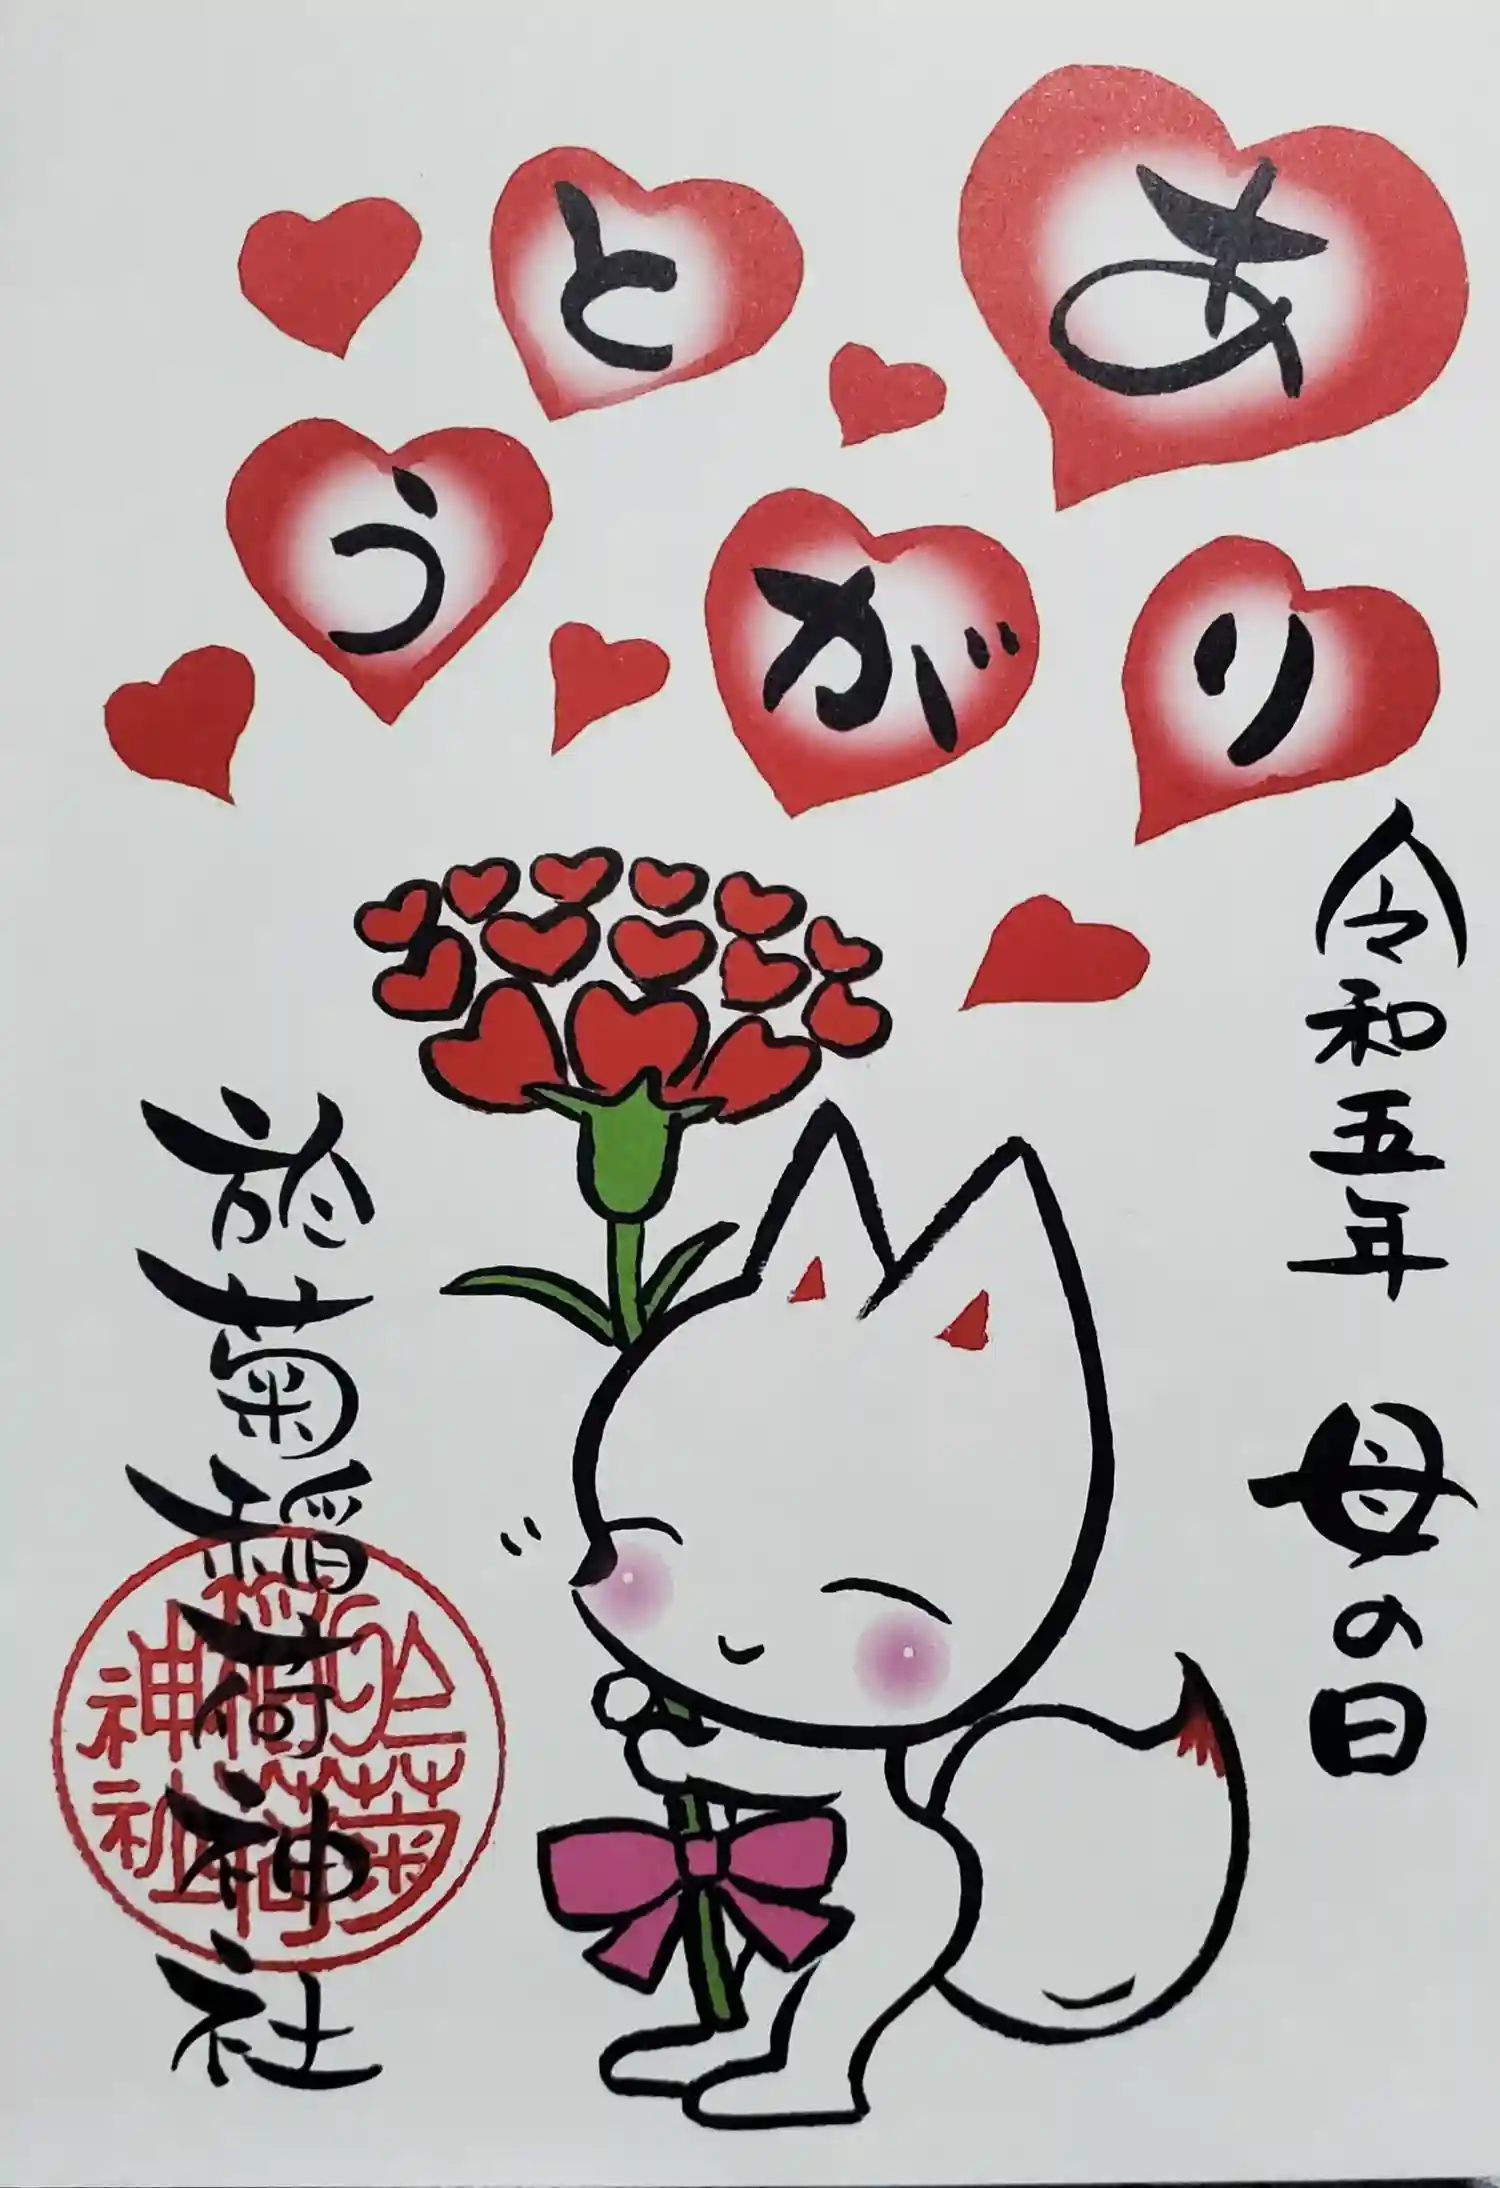 あ
り
が
と
う
令和五年 母の日
於菊稲荷神社
於菊
稲荷
神社